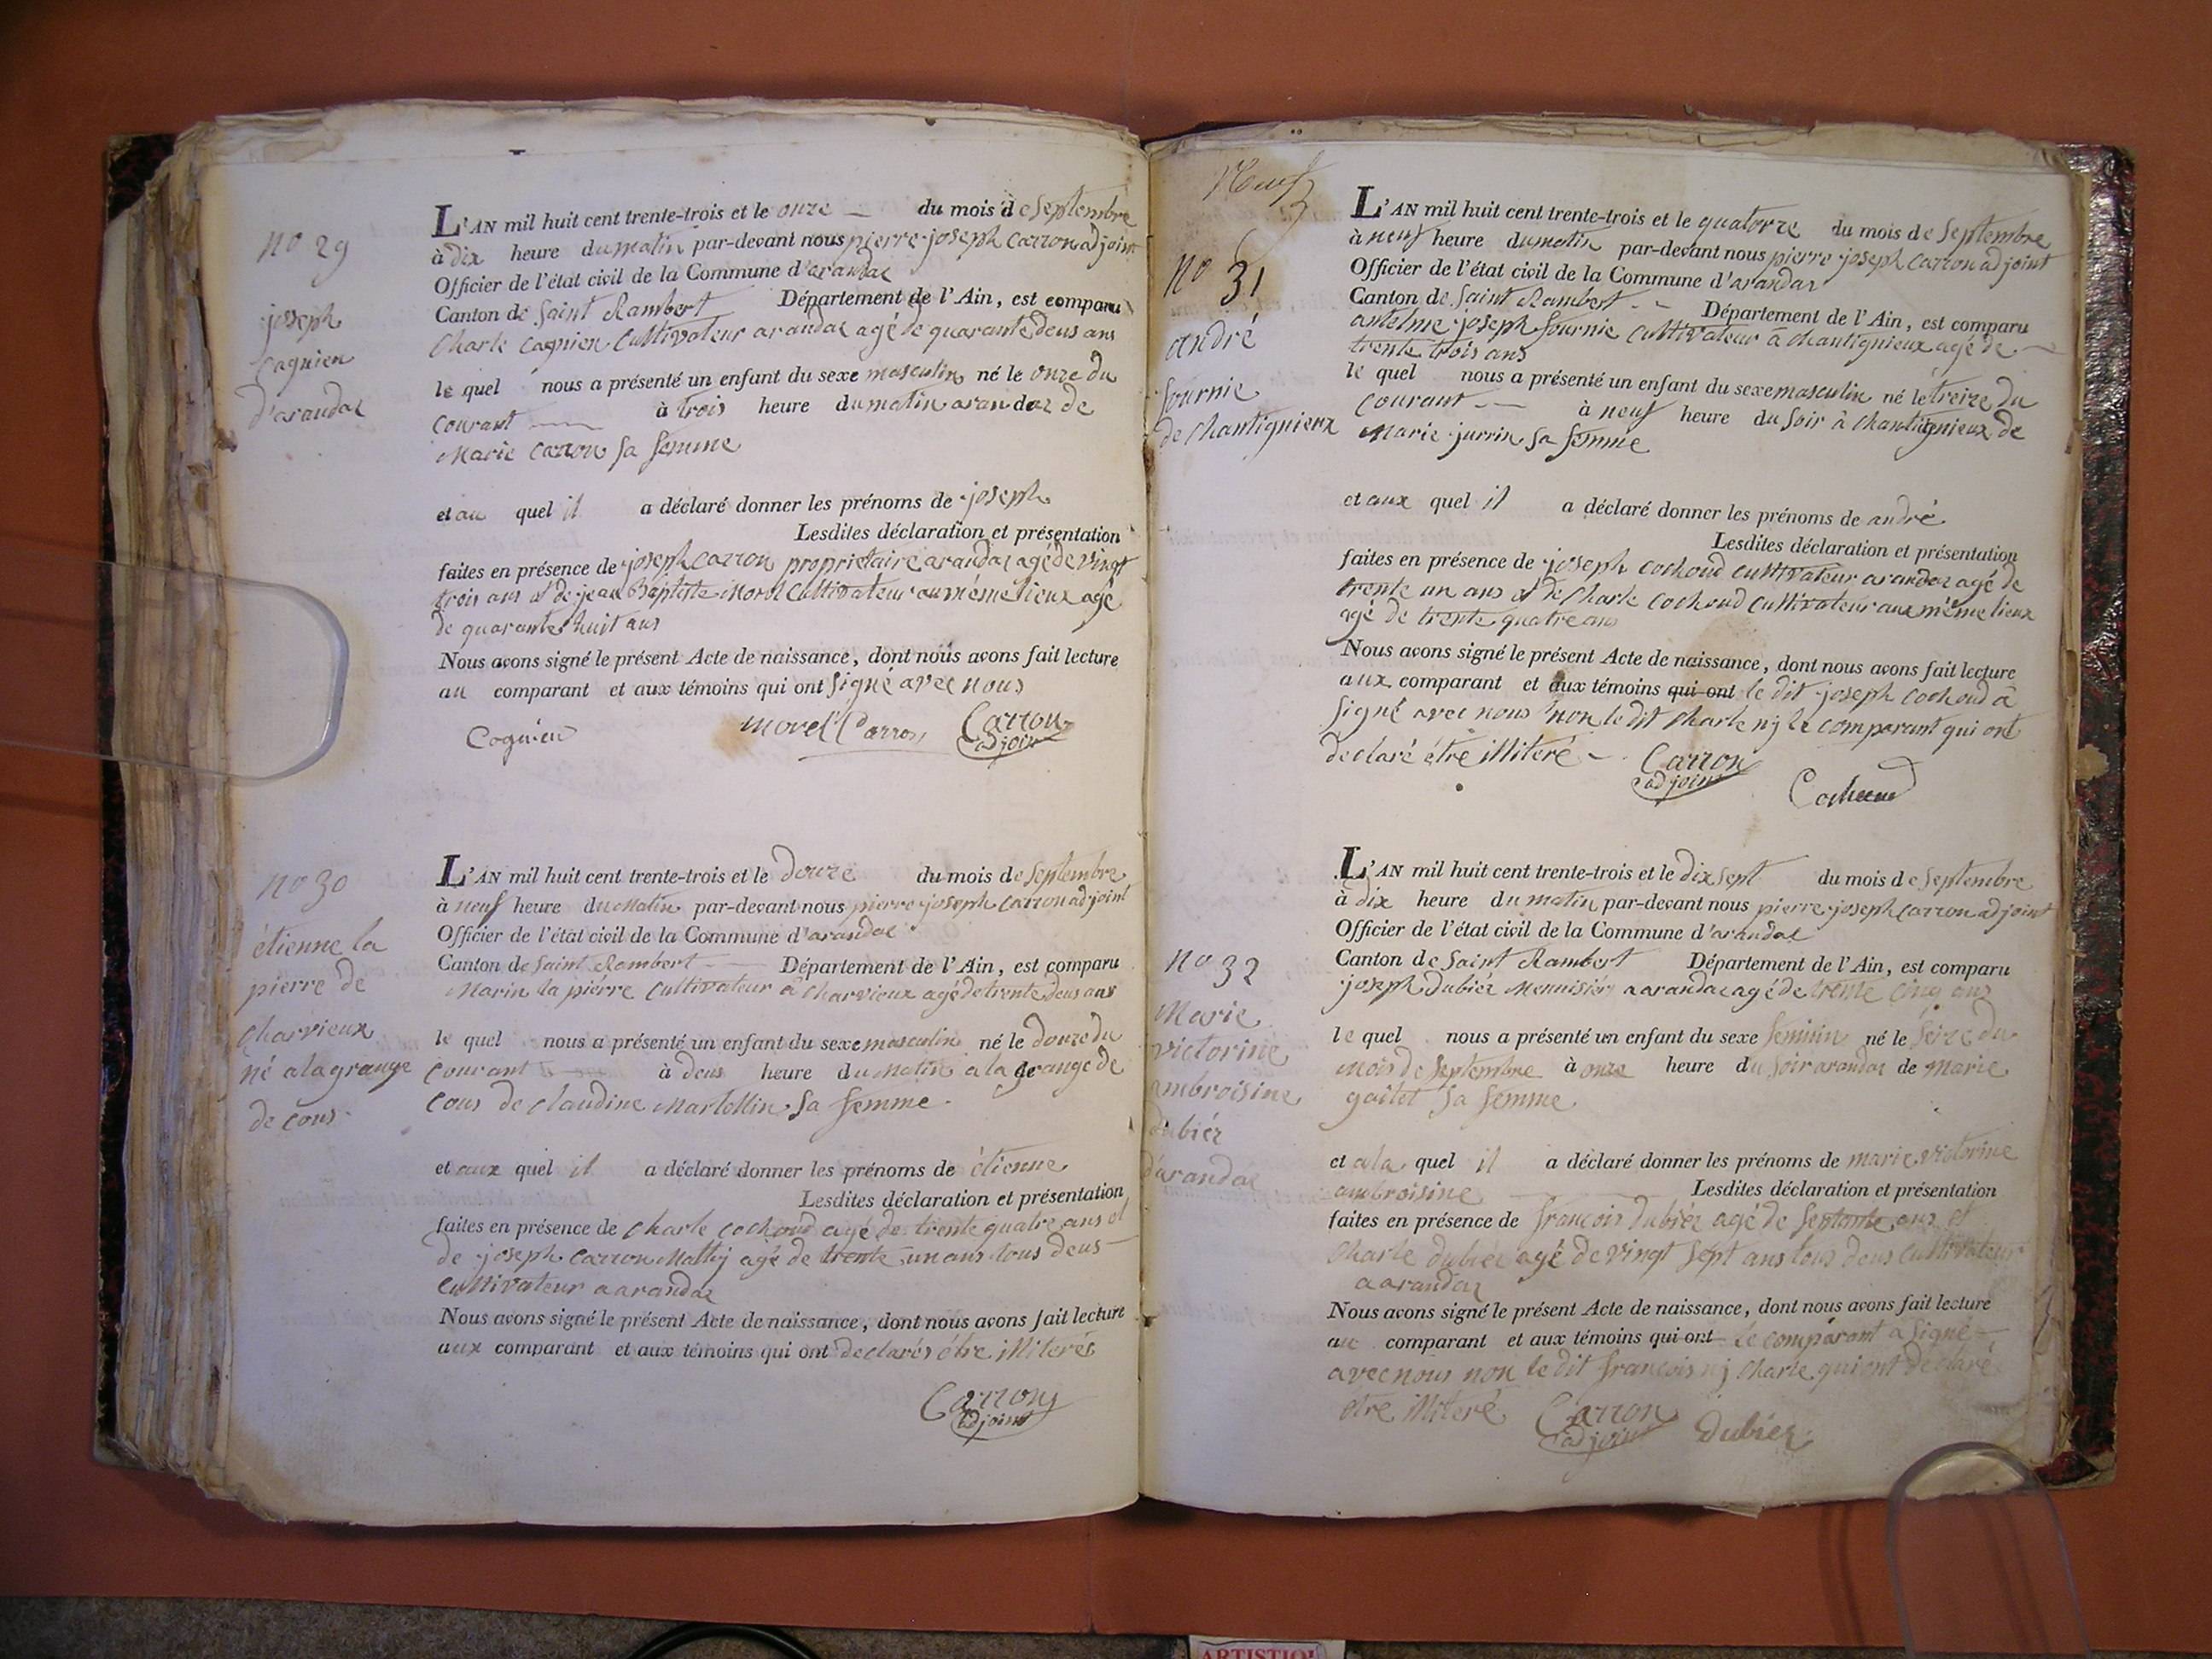 no 29
joseph
Cagnien
d'arandas
L'AN mil huit cent trente-trois et le onze du mois de septembre
à dix heure du matin par-devant nous pierre joseph Carron adjoint
Officier de l'état civil de la Commune d'arandas
Canton de Saint Rambert Département de l'Ain, est comparu
Charle Cagnien Cultivateur arandas agé de quarante deus ans
le quel nous a présenté un enfant du sexe masculin né le onze du
Courant à trois heure du matin arandas de
Marie Carron sa femme
et au quel il a déclaré donner les prénoms de joseph
Lesdites déclaration et présentation
faites en présence de joseph carron proprietaire arandas agé de vingt
trois ans et de jean Baptiste Morel Cultivateur au même lieux agé
de quarante huit ans
Nous avons signé le présent Acte de naissance, dont nous avons fait lecture
au comparant et aux témoins qui ont signé avec nous
Cognien morel Carron Carron
adjoint
no 30
étienne la
pierre de
Charvieux
né a la grange
de cous
L'AN mil huit cent trente-trois et le douze du mois de septembre
à neuf heure du Matin par-devant nous pierre joseph Carron adjoint
Officier de l'état civil de la Commune d'arandas
Canton de Saint Rambert Département de l'Ain, est comparu
Marin la piérre Cultivateur à Charvieux agé de trente deus ans
le quel nous a présenté un enfant du sexe masculin né le douze du
Courant à deus heure du Matin a la grange de
Cous de Claudine Martellin sa femme
et aux quel il a déclaré donner les prénoms de étienne
Lesdites déclaration et présentation
faites en présence de Charle cochoud agé de trente quatre ans et
de joseph Carron Mathy agé de trente un ans tous deus
Cultivateur a arandas
Nous avons signé le présent Acte de naissance, dont nous avons fait lecture
aux comparant et aux témoins qui ont declarés étre illiterés
Carron
adjoint
Neuf
no 31
andré
fournie
de Chantignieux
L'AN mil huit cent trente-trois et le quatorze du mois de Septembre
à neuf heure du matin par-devant nous pierre joseph Carron adjoint
Officier de l'état civil de la Commune d'arandas
Canton de Saint Rambert Département de l'Ain, est comparu
antelme joseph fournie Cultivateur à Chantignieux agé de
trente trois ans
le quel nous a présenté un enfant du sexe masculin né le treize du
Courant à neuf heure du soir à Chantignieux de
Marie jurrin sa femme
et aux quel il a déclaré donner les prénoms de andré
Lesdites déclaration et présentation
faites en présence de joseph cochoud cultivateur arandas agé de
trente un ans et de Charle cochoud Cultivateur aux même lieux
agé de trente quatre ans
Nous avons signé le présent Acte de naissance, dont nous avons fait lecture
aux comparant et aux témoins qui ont le dit joseph cochoud à
signé avec nous non le dit Charle ny le comparant qui ont
declaré étre illiteré Carron
adjoint
Cochoud
no 32
Marie
victorine
ambroisine
dubiéz
d'arandas
L'AN mil huit cent trente-trois et le dix sept du mois de septembre
à dix heure du matin par-devant nous pierre joseph Carron adjoint
Officier de l'état civil de la Commune d'arandas
Canton de Saint Rambert Département de l'Ain, est comparu
joseph dubiéz Menuisier a arandas agé de trente cinq ans
le quel nous a présenté un enfant du sexe feminin né le seize du
mois de septembre à onze heure du soir arandas de marie
gaitet sa femme
et a la quel il a déclaré donner les prénoms de marie victorine
ambroisine Lesdites déclaration et présentation
faites en présence de françois dubiéz agé de septante ans et
Charle dubiez agé de vingt sept ans tous deus cultivateur
a arandas
Nous avons signé le présent Acte de naissance, dont nous avons fait lecture
au comparant et aux témoins qui ont le comparant a signé
avec nous non le dit françois ny Charle qui ont déclaré
étre illiteré Carron
adjoint dubiez